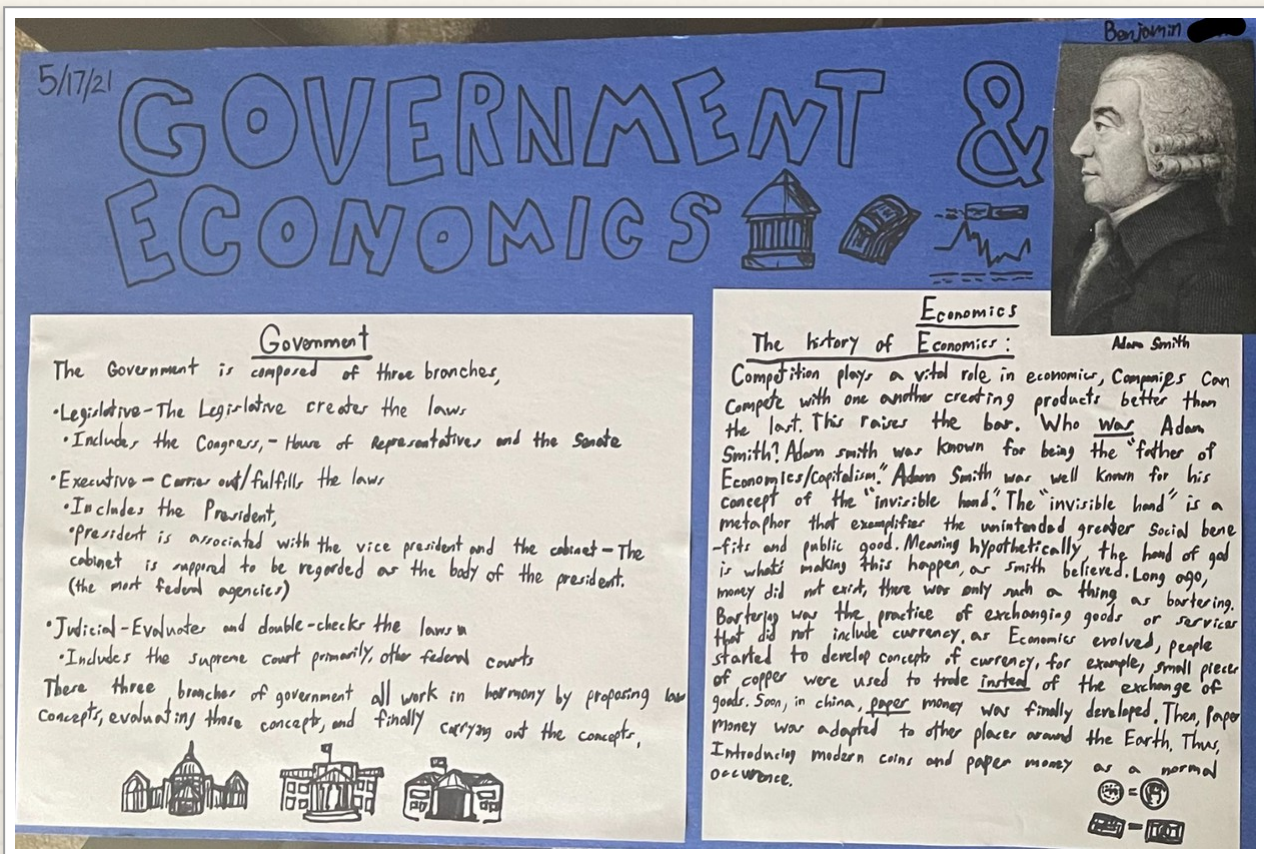 Benjamin
5/17/21
GOVERNMENT &
ECONOMICS
Government
The Government is composed of three branches,
•Legislative-The Legislative creates the laws
•Includes the Congress,- House of Representatives and the Senate
•Executive - Carries out/fulfills the laws
•Includes the President,
•President is associated with the vice president and the cabinet - The
cabinet is supposed to be regarded as the body of the president.
(the most federal agencies)
•Judicial-Evaluates and double-checks the laws
•Includes the supreme court primarily, other federal courts
These three branches of government all work in harmony by proposing law
concepts, evaluating those concepts, and finally carrying out the concepts.
Economics
The history of Economics:
Adam Smith
Competition plays a vital role in economics, Companies Can
Compete with one another creating products better than
the last. This raises the bar. Who was Adam
Smith? Adam smith was known for being the "father of
Economics/Capitalism." Adam Smith was well known for his
concept of the "invisible hand". The "invisible hand" is a
metaphor that exemplifies the unintended greater Social bene
-fits and public good. Meaning hypothetically, the hand of god
is whats making this happen, as smith believed. Long ago,
money did not exist, there was only such a thing as bartering.
Bartering was the practice of exchanging goods or services
that did not include currency. as Economics evolved, people
started to develop concepts of currency, for example, small pieces
of copper were used to trade instead of the exchange of
goods. Soon, in china, paper money was finally developed. Then, Paper
money was adapted to other places around the Earth. Thus,
Introducing modern coins and paper money as a normal
occurence.